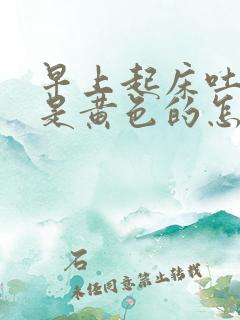 早上起床吐
是黄色的怎
石
未经同意禁止转载